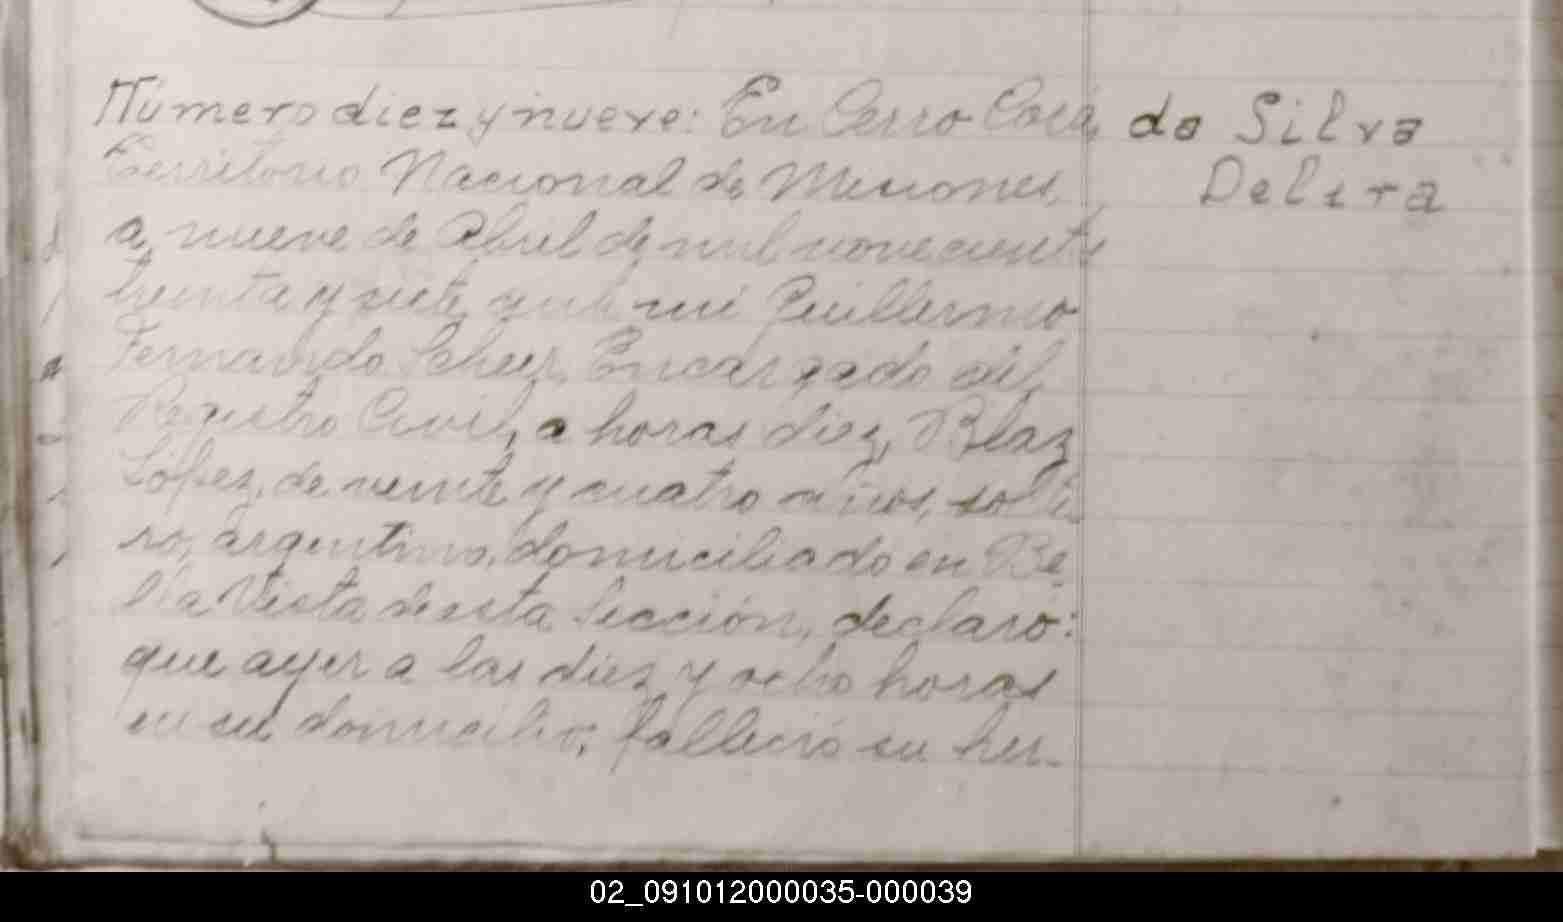 Número diez y nueve: En Cerro Corá,
Territorio Nacional de Misiones,
a nueve de Abril de mil novecientos
treinta y siete, ante mí Guillermo
Fernando Scheer, Encargado del
Registro Civil, a horas diez, Blaz
López, de veinte y cuatro años, solte
ro, argentino, domiciliado en Be-
lla Vista de esta Sección, declaró:
que ayer a las diez y ocho horas
en su domicilio; falleció su her-
da Silva
Delira
02_091012000035-000039